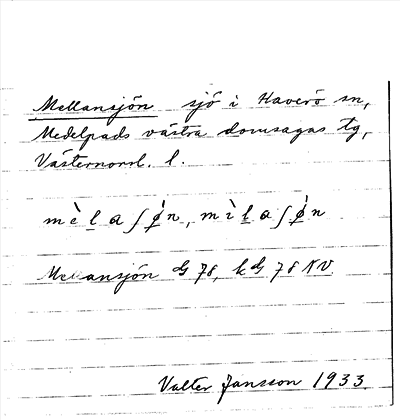 Mellansjön sjö i Haverö sn,
Medelpads västra domsagas tg,
Västernorrl. l.
mèḻaʃø̀n, mìḻaʃø̀n
Mellansjön G 78, kG 78 NV
Valter Jansson 1933